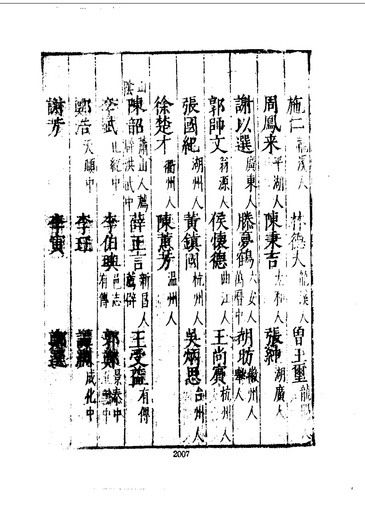 施仁 龍溪人 林 大 龍溪人 曾玉璽
周鳳來 平湖人 陳秉吉 太和人 張紳 湖廣人
謝以選 廣東人 滕夢鶴 六安人 萬曆中 胡昉 徽州人 舉人
郭師文 翁源人 侯懷德 曲江人 王尚賓 杭州人
張國紀 湖州人 黃鎮國 杭州人 吳炳思 台州人
徐楚才 衢州人 陳蕙芳 溫州人
山陰 陳韶 蕭山人 薦辟 洪武中 薛正言 新昌人 薦辟 王受益 有傳
武 正統中 李伯輿 邑志有傳 郭鄭 景泰中
鄭浩 天順中 李珏 譚 成化中
謝芳 李寅
2007